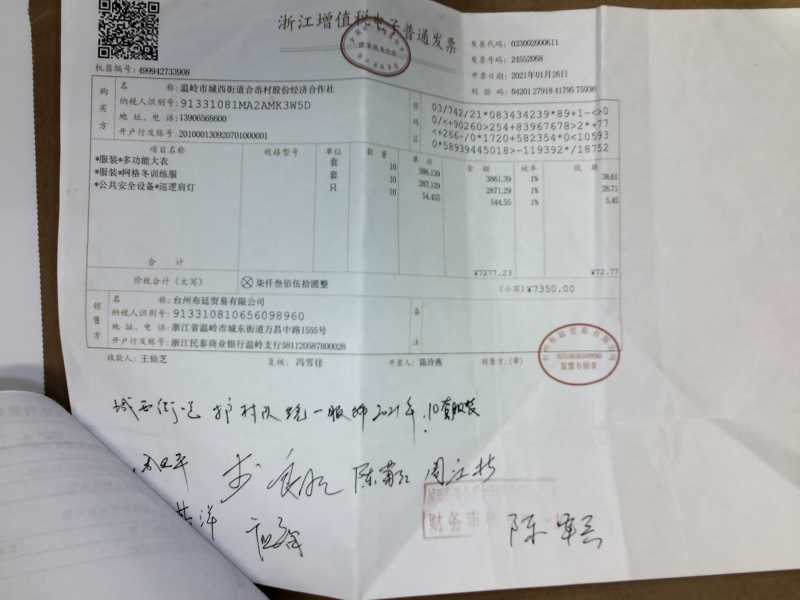 浙江增值税电子普通发票
发票代码: 033002000611
发票号码: 24552068
开票日期: 2021年01月26日
校 验 码: 04201 27918 41795 75036
机器编号: 499942733908
购买方
名 称: 温岭市城西街道合岙村股份经济合作社
纳税人识别号: 91331081MA2AMK3W5D
地 址、电 话: 13906568600
开户行及账号: 201000130920701000001
密码区
03/742/21*083434239*89+1-<>00
0/<+90260>254+83967678>2*+77
<+266-/0*1720+582354*0<10593
0*58939445018>-119392*/18752
项目名称 规格型号 单位 数量 单价 金额 税率 税额
*服装*多功能大衣 套 10 386.139 3861.39 1% 38.61
*服装*网格冬训练服 套 10 287.129 2871.29 1% 28.71
*公共安全设备*巡逻肩灯 只 10 54.455 544.55 1% 5.45
合 计 ¥7277.23 ¥72.77
价税合计(大写) ⊗柒仟叁佰伍拾圆整 (小写)¥7350.00
销售方
名 称: 台州布廷贸易有限公司
纳税人识别号: 913310810656098960
地 址、电 话: 浙江省温岭市城东街道万昌中路1555号
开户行及账号: 浙江民泰商业银行温岭支行581120587800028
备注
收款人: 王仙芝 复核: 冯雪佳 开票人: 陈玲燕 销售方:(章)
发票专用章
城西街道 护村队统一服饰2021年.10套服装
陈菊红
财务审
陈军